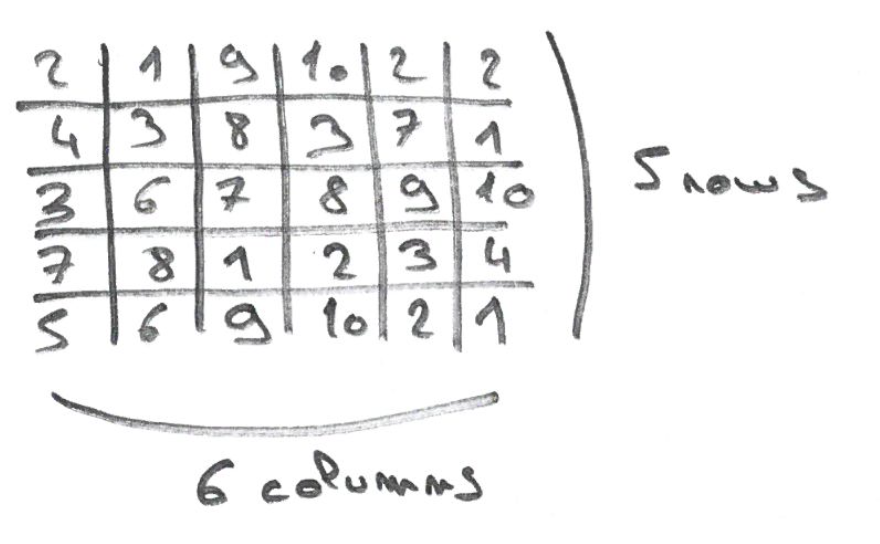 2 1 9 10 2 2
4 3 8 3 7 1
3 6 7 8 9 10
7 8 1 2 3 4
5 6 9 10 2 1
5 rows
6 columns